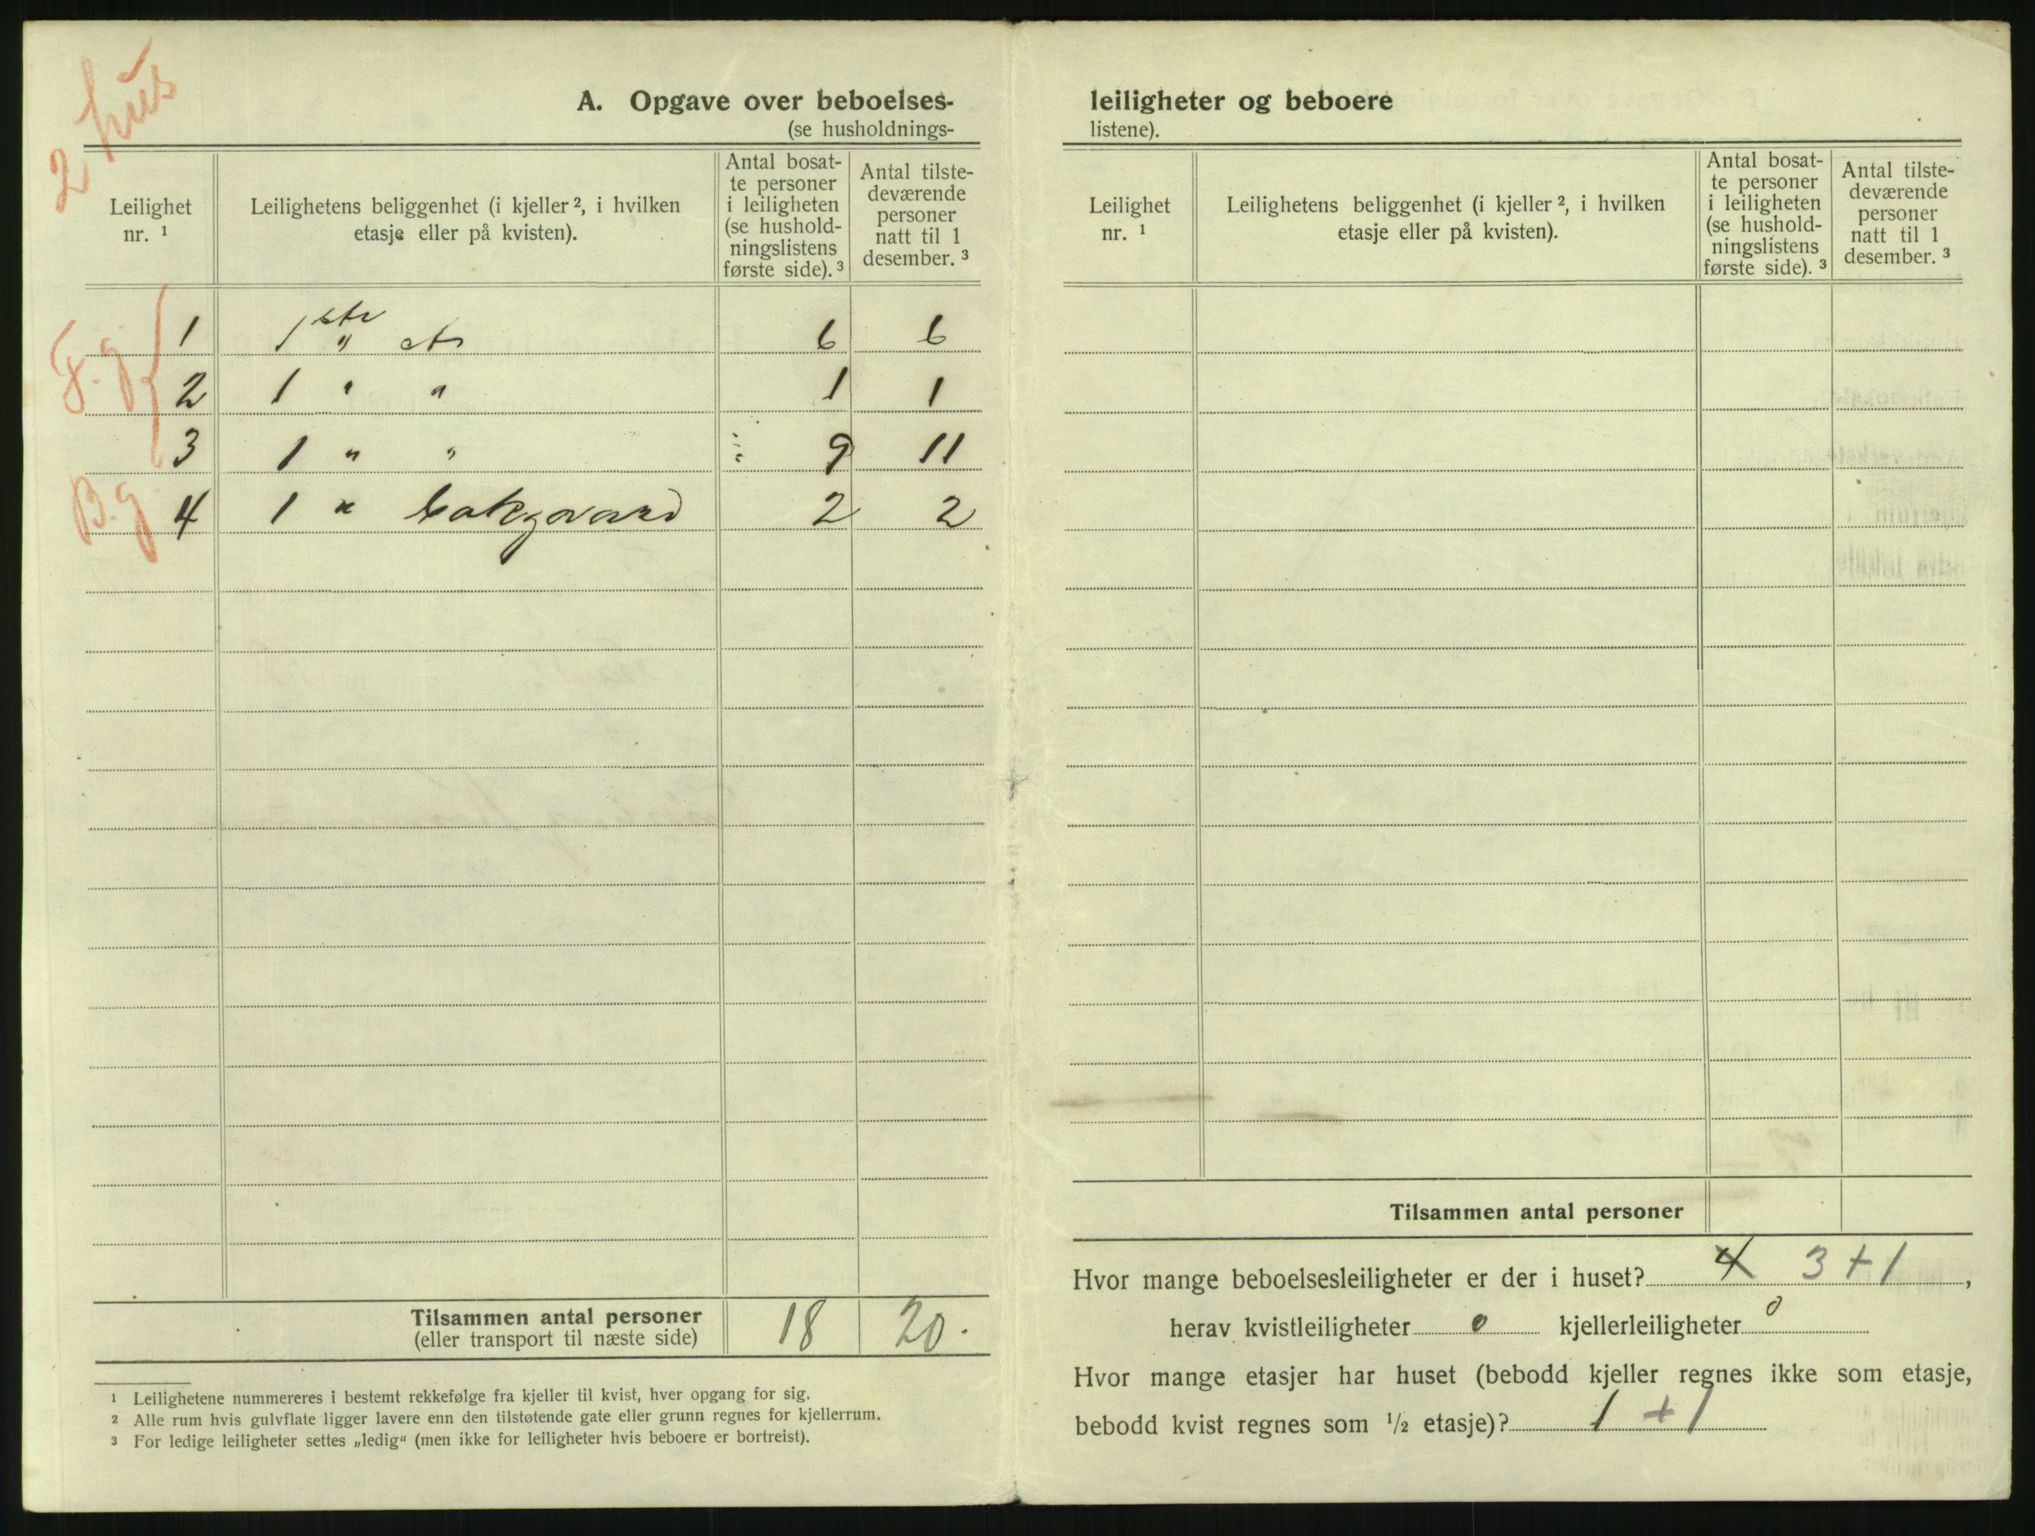 2 hus
A. Opgave over beboelses-
(se husholdnings-
Leilighet nr. ¹
Leilighetens beliggenhet (i kjeller ², i hvilken etasje eller på kvisten).
Antal bosat-
te personer
i leiligheten
(se hushold-
ningslistens
første side). ³
Antal tilste-
deværende
personer
natt til 1
desember. ³
F.g. 1 1ste " et. 6 6
2 1 " " 1 1
3 1 " " 9 11
B.g 4 1 " bakgaard 2 2
Tilsammen antal personer 18 20.
(eller transport til næste side)
¹ Leilighetene nummereres i bestemt rekkefølge fra kjeller til kvist, hver opgang for sig.
² Alle rum hvis gulvflate ligger lavere enn den tilstøtende gate eller grunn regnes for kjellerrum.
³ For ledige leiligheter settes „ledig“ (men ikke for leiligheter hvis beboere er bortreist).
leiligheter og beboere
listene).
Leilighet nr. ¹
Leilighetens beliggenhet (i kjeller ², i hvilken etasje eller på kvisten).
Antal bosat-
te personer
i leiligheten
(se hushold-
ningslistens
første side). ³
Antal tilste-
deværende
personer
natt til 1
desember. ³
Tilsammen antal personer
Hvor mange beboelsesleiligheter er der i huset? 4 3 + 1,
herav kvistleiligheter 0 kjellerleiligheter 0
Hvor mange etasjer har huset (bebodd kjeller regnes ikke som etasje,
bebodd kvist regnes som ½ etasje)? 1 + 1